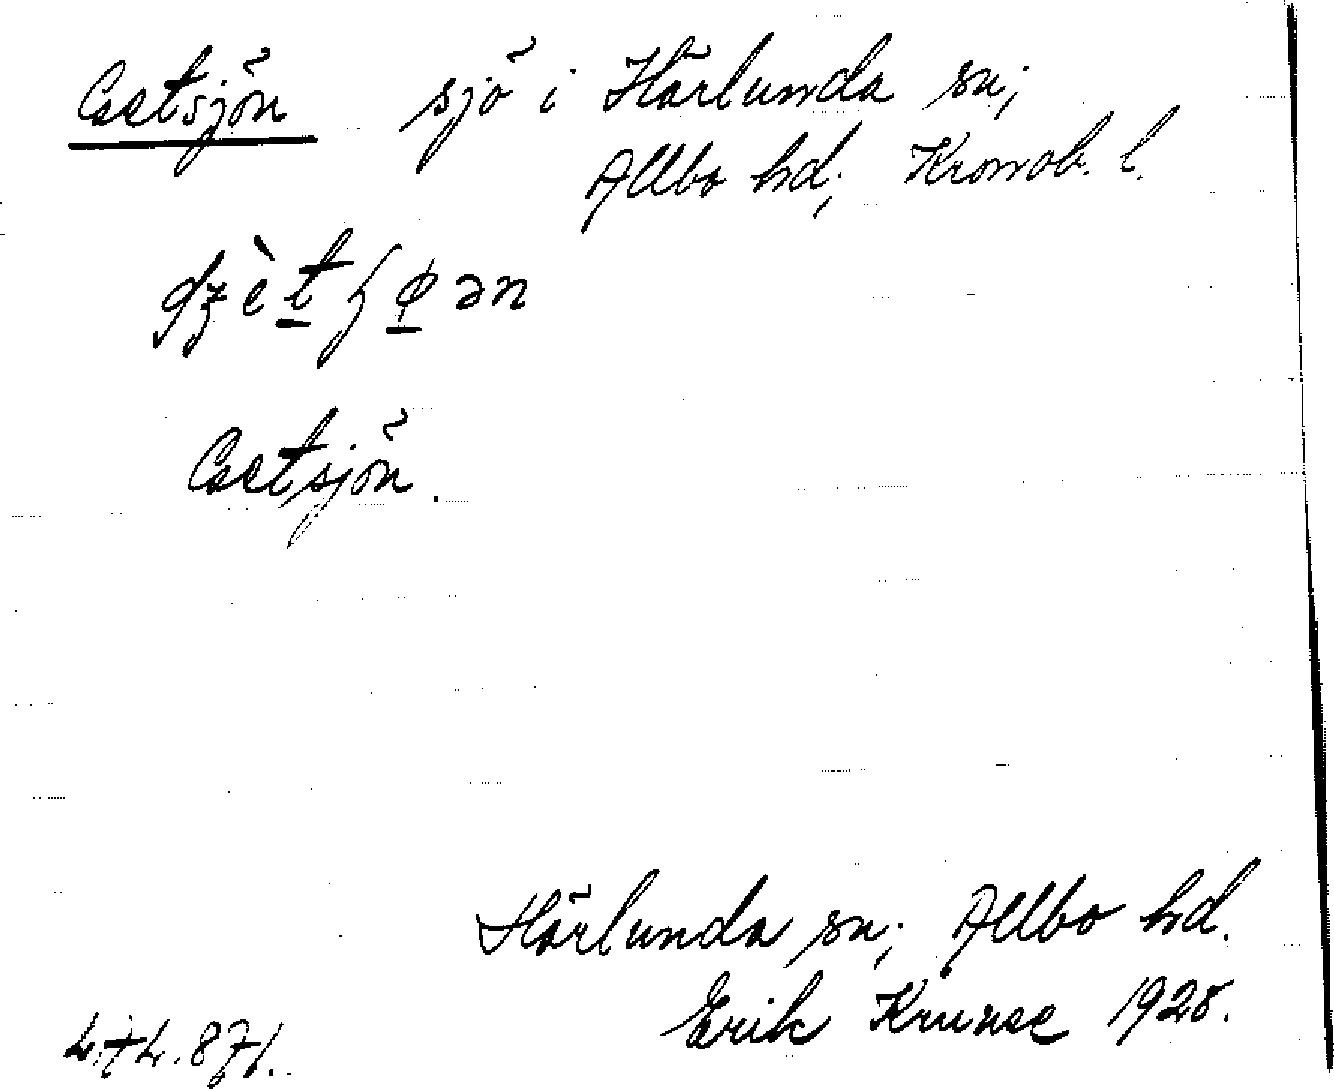 Getsjön sjö i Härlunda sn;
Allbo hd; Kronob. l.
Getsjön.
Härlunda sn; Allbo hd.
Erik Kruuse 1928.